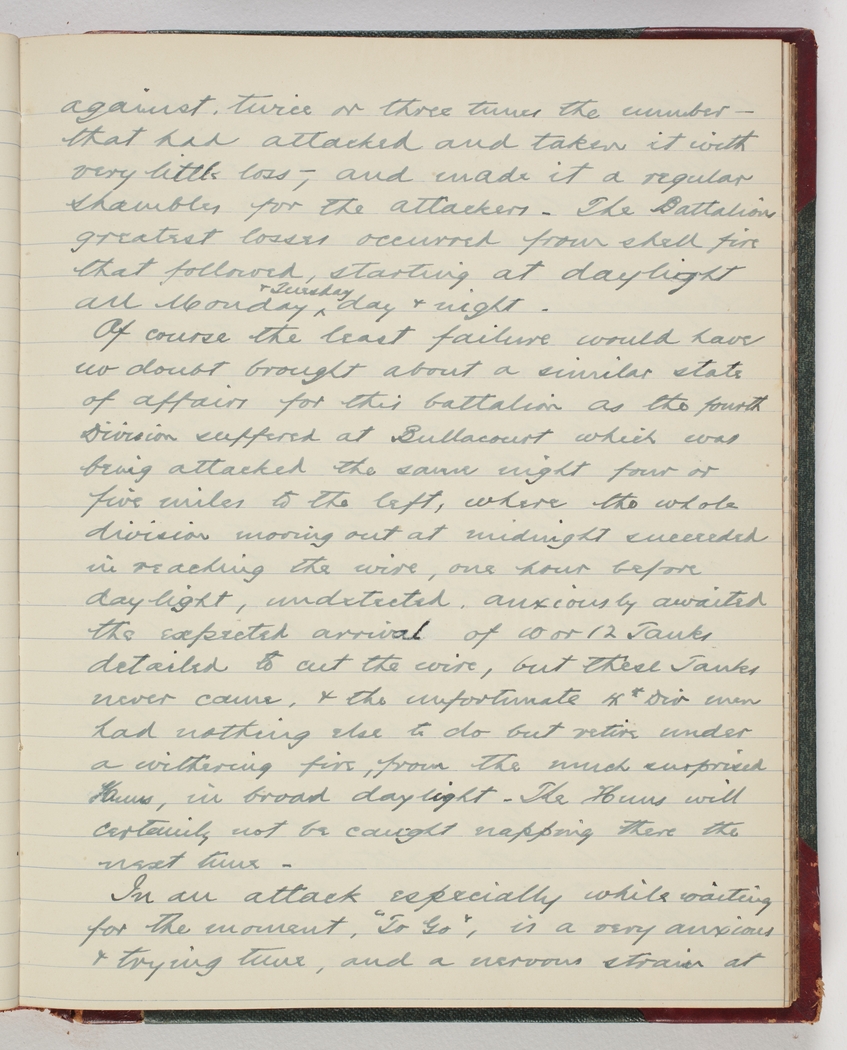 against. twice or three times the number –
that had attacked and taken it with
very little loss –, and made it a regular
shambles for the attackers – The Battalions
greatest losses occurred from shell fire
that followed, starting at daylight
all Monday & Tuesday day & night .
Of course the least failure would have
no doubt brought about a similar state
of affairs for this battalion as the fourth
Division suffered at Bullacourt which was
being attacked the same night four or
five miles to the left, where the whole
division moving out at midnight succeeded
in reaching the wire, one hour before
daylight, undetected. anxiously awaited
the expected arrival of 10 or 12 Tanks
detailed to cut the wire, but these Tanks
never came, & the unfortunate 4th Div men
had nothing else to do but retire under
a withering fire, from the much surprised
Huns, in broad daylight – The Huns will
certainly not be caught napping there the
next time –
In an attack especially while waiting
for the moment, "To Go", is a very anxious
& trying time, and a nervous strain at